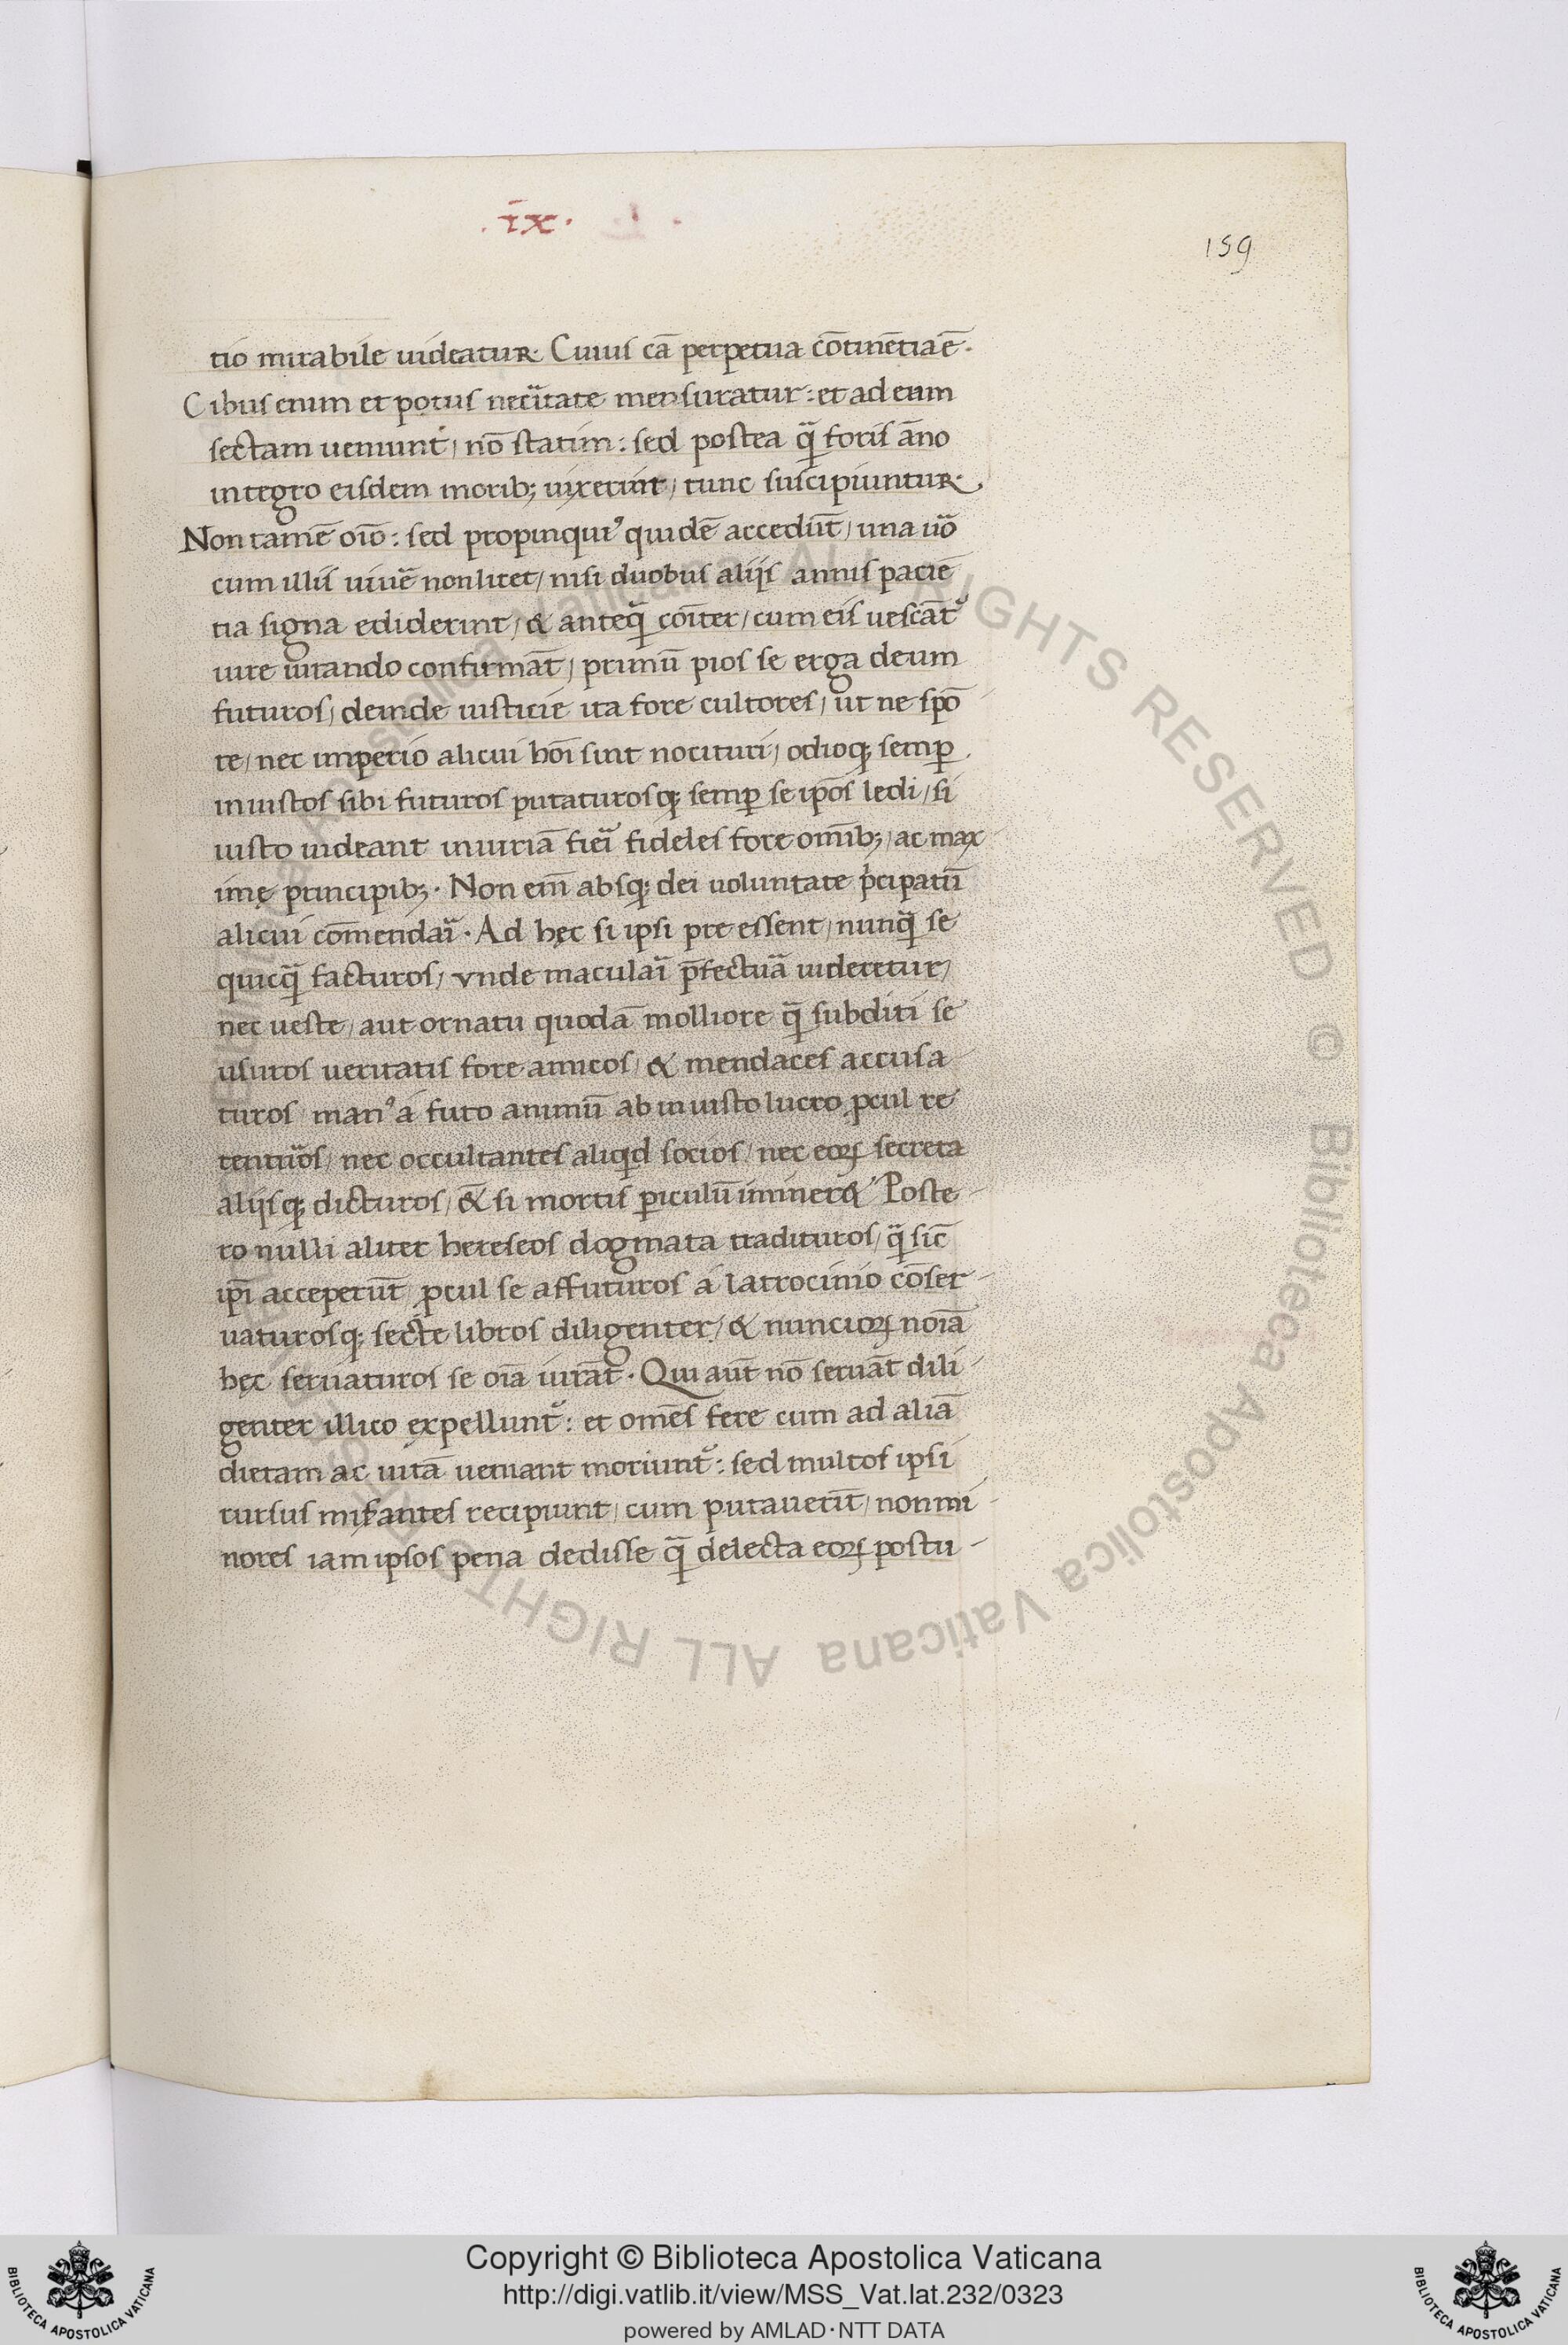 .ix.
159
tio mirabile uideatur. Cuius cā perpetua cōtinētia ē.
Cibus enim et potus necītate mensuratur: et ad eum
sectam ueniunt, nō statim: sed postea q̄ foris āno
integro eisdem morib; uixerint, tunc suscipiuntur.
Non tamē oīo: sed propinquiꝰ quidē accedūt, una uō
cum illis uiuē non licet, nisi duobus alijs annis paciē
tia signa ediderint, & anteq̄ cōiter, cum eis uescāt᷑
iure iurando confirmāt, primū pios se erga deum
futuros, deinde iusticie ita fore cultores, ut ne spō
te, nec imperio alicui hōi sint nocituri, odioq; semꝑ
iniustos sibi futuros putaturosq; semꝑ se ipōs ledi, si
iusto uideant iniuriā fieī fideles fore omīb;, ac max
imę principib;. Non em̄ absq; dei uoluntate pͥcipatū
alicui cōmendaī. Ad hęc si ipsi pre essent, nunq̄ se
quicq̄ facturos, vnde maculaī p̄fecturā uideretur,
nec ueste, aut ornatu quodā molliore q̄ subditi se
usuros ueritatis fore amicos, & mendaces accusa
turos manꝰ a furto animū ab iniusto lucro ꝓcul re
tentuōs, nec occultantes aliqͥd socios, nec eoꝝ secreta
alijsq; dicturos, & si mortis ꝑiculū immineret Poste-
ro nulli aliter hereseos dogmata tradituros, q̄ sic̄
ip̄i acceperūt ꝓcul se affuturos a latrocinio cōser-
uaturosq; secte libros diligenter, & nuncioꝝ noīa
hęc seruaturos se oīa iurāt. Qui aūt nō seruāt dili-
genter illico expellunt᷑: et omēs fere cum ad aliā
dietam ac uitā ueniant moriunt᷑: sed multos ipsi
rursus misantes recipiunt, cum putauerīt, non mi-
nores iam ipsos pena dedisse q̄ delecta eoꝝ postu-
Copyright © Biblioteca Apostolica Vaticana
http://digi.vatlib.it/view/MSS_Vat.lat.232/0323
powered by AMLAD·NTT DATA
BIBLIOTECA APOSTOLICA VATICANA
BIBLIOTECA APOSTOLICA VATICANA
© Biblioteca Apostolica Vaticana ALL RIGHTS RESERVED